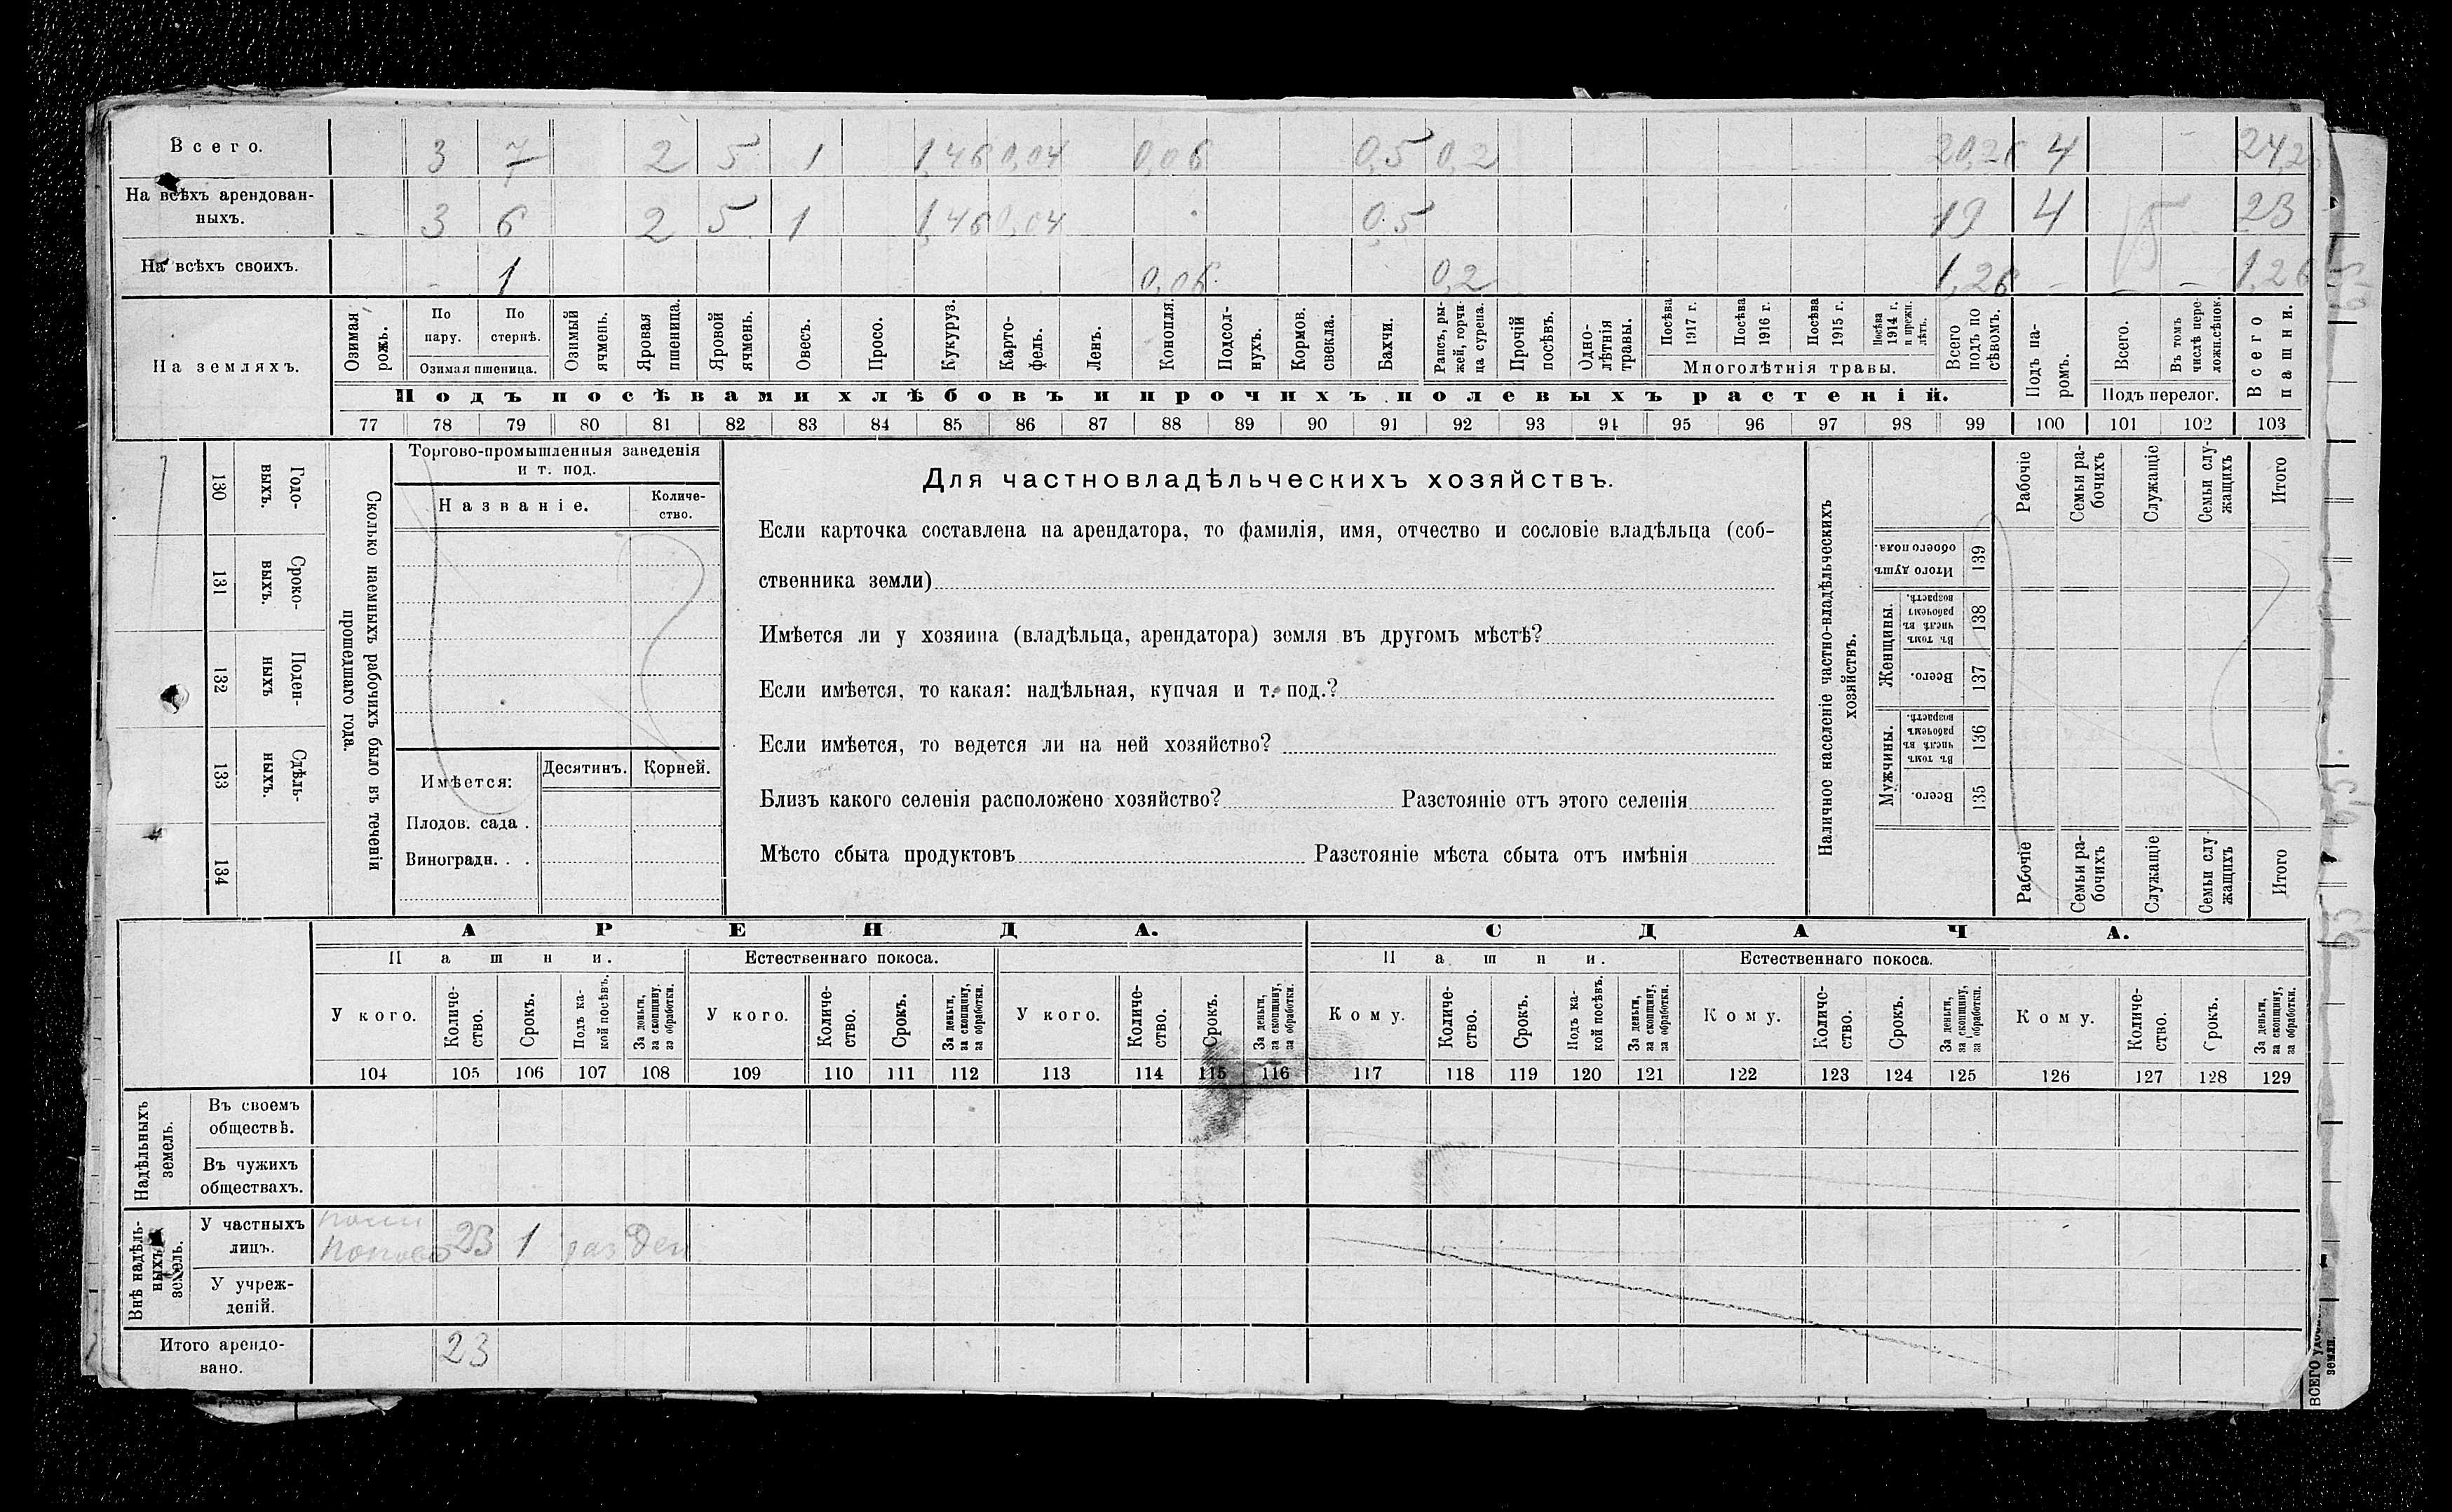 Всего. 3 7 2 5 1 1,46 0,04 0,06 0,5 0,2 20,26 4 24,2
На всѣхъ арендован-
ныхъ. 3 6 2 5 1 1,46 0,04 0,5 19 4 23
На всѣхъ своихъ. - 1 0,06 0,2 1,26 - - - 1,26
На земляхъ.
Озимая рожь.
По пару.
По стернѣ.
Озимая пшеница.
Озимый ячмень.
Яровая пшеница.
Яровой ячмень.
Овесъ.
Просо.
Кукуруз.
Карто-
фель.
Ленъ.
Конопля.
Подсол-
нухъ.
Кормов. свекла.
Бахчи.
Рапсъ, ры-
жей, горчи-
ца сурепа.
Прочій посѣвъ.
Одно-
лѣтнія травы.
Посѣва 1917 г.
Посѣва 1916 г.
Посѣва 1915 г.
Посѣва 1914 г. и прежн. лѣтъ.
Многолѣтнія травы.
Всего подъ по
сѣвомъ.
Подъ па-
ромъ.
Всего.
Въ томъ числѣ пере-
ложн.сѣнок.
Подъ перелог.
Всего пашни.
Подъ посѣвами хлѣбовъ и прочихъ полевыхъ растеній.
77 78 79 80 81 82 83 84 85 86 87 88 89 90 91 92 93 94 95 96 97 98 99 100 101 102 103
130 Годо-
выхъ.
131 Сроко-
выхъ.
132 Поден-
ныхъ
133 Сдѣль-
ныхъ.
134
Сколько наемныхъ рабочихъ было въ теченіи
прошедшаго года.
Торгово-промышленныя заведенія
и т. под.
Названіе.
Количе-
ство.
Имѣется: Десятинъ. Корней.
Плодов. сада .
Виноградн. . .
Для частновладѣльческихъ хозяйствъ.
Если карточка составлена на арендатора, то фамилія, имя, отчество и сословіе владѣльца (соб-
ственника земли)
Имѣется ли у хозяина (владѣльца, арендатора) земля въ другомъ мѣстѣ?
Если имѣется, то какая: надѣльная, купчая и т. под.?
Если имѣется, то ведется ли на ней хозяйство?
Близъ какого селенія расположено хозяйство? Разстояніе отъ этого селенія
Мѣсто сбыта продуктовъ Разстояніе мѣста сбыта отъ имѣнія
Наличное населеніе частно-владѣльческихъ
хозяйствъ.
Рабочіе
Семьи ра-
бочихъ
Служащіе
Семьи слу-
жащихъ
Итого
Итого душъ обоего пола. 139
Женщины.
Въ томъ числѣ въ рабочемъ возрастѣ. 138
Всего. 137
Мужчины.
Въ томъ числѣ въ рабочемъ возрастѣ. 136
Всего. 135
Рабочіе
Семьи ра-
бочихъ
Служащіе
Семьи слу
жащихъ
Итого
АРЕНДА. СДАЧА.
Пашни. Естественнаго покоса. Пашни. Естественнаго покоса.
У кого.
Количе-
ство.
Срокъ.
Подъ ка-
кой посѣвъ.
За деньги, за скопщину, за обработки.
У кого.
Количе-
ство.
Срокъ.
За деньги, за скопщину, за обработки.
У кого.
Количе-
ство.
Срокъ.
За деньги, за скопщину, за обработки.
Кому.
Количе-
ство.
Срокъ.
Подъ ка-
кой посѣвъ.
За деньги, за скопщину, за обработки.
Кому.
Количе-
ство.
Срокъ.
За деньги, за скопщину, за обработки.
Кому.
Количе-
ство.
Срокъ.
За деньги, за скопщину, за обработки.
104 105 106 107 108 109 110 111 112 113 114 115 116 117 118 119 120 121 122 123 124 125 126 127 128 129
Надѣльныхъ земель.
Въ своемъ
обществѣ.
Въ чужихъ
обществахъ.
Внѣ надѣль-
ныхъ земель.
У частныхъ
лицъ. 23 1 раз Ден
У учреж-
деній.
Итого арендо-
вано. 23
ВСЕГО
земли.